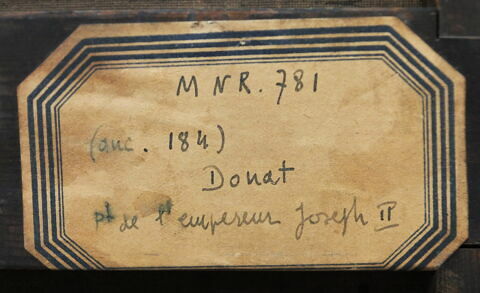 MNR. 781
(anc. 184)
Donat
pt de l'empereur Joseph II